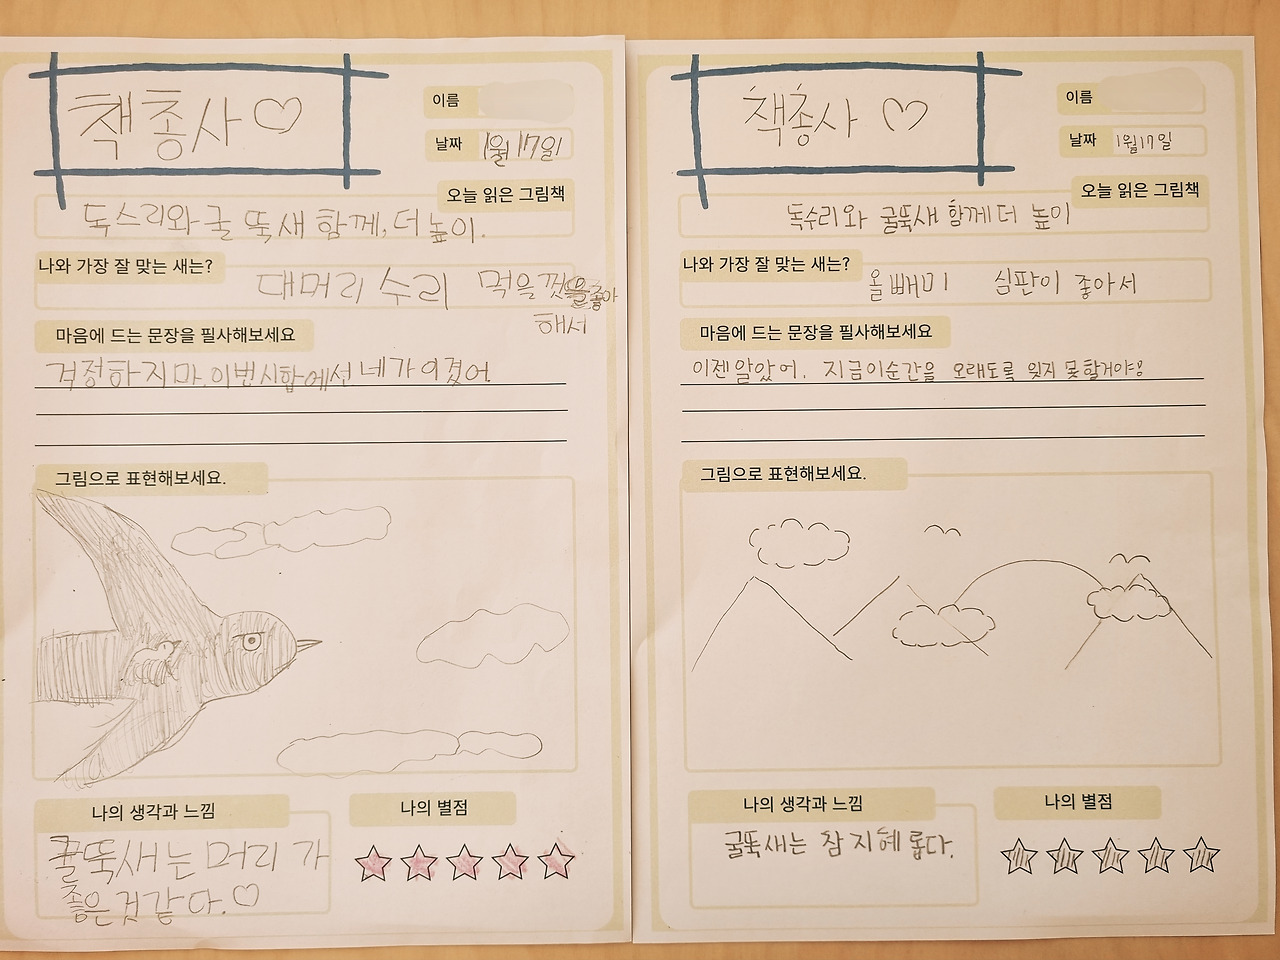 책총사♡
이름
날짜 1월 17일
오늘 읽은 그림책
독수리와 굴뚝새 함께, 더 높이.
나와 가장 잘 맞는 새는?
대머리 수리 먹을껏
좋아
해서
마음에 드는 문장을 필사해보세요
걱정하지마. 이번시합에선 네가 이겼어.
그림으로 표현해보세요.
나의 생각과 느낌
굴뚝새는 머리가
좋은것같다.♡
나의 별점
책총사♡
이름
날짜 1월17일
오늘 읽은 그림책
독수리와 굴뚝새 함께 더 높이
나와 가장 잘 맞는 새는?
올빼미 심판이 좋아서
마음에 드는 문장을 필사해보세요
이젠알았어. 지금이순간을 오래도록 잊지 못할거야!
그림으로 표현해보세요.
나의 생각과 느낌
굴뚝새는 참 지혜롭다.
나의 별점